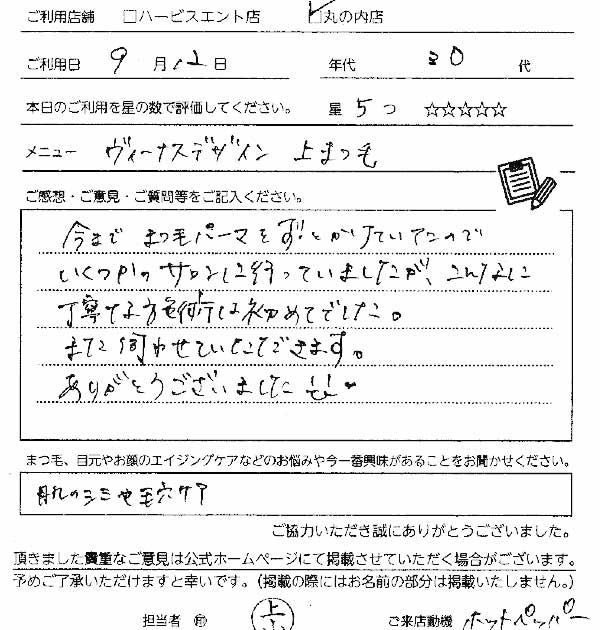 ご利用店舗 □ハービスエント店 ☑丸の内店
ご利用日 9月12日 年代 30代
本日のご利用を星の数で評価してください。 星 5つ ☆☆☆☆☆
メニュー ヴィーナスデザイン 上まつ毛
ご感想・ご意見・ご質問等をご記入ください。
今まで まつ毛パーマをずっとかけていたので
いくつかのサロンに行っていましたが、こんなに
丁寧な施術は初めてでした。
また伺わせていただきます。
ありがとうございました
まつ毛、目元やお顔のエイジングケアなどのお悩みや今一番興味があることをお聞かせください。
肌のシミや毛穴ケア
ご協力いただき誠にありがとうございました。
頂きました貴重なご意見は公式ホームページにて掲載させていただく場合がございます。
予めご了承いただけますと幸いです。（掲載の際にはお名前の部分は掲載いたしません。）
担当者 ㊞ 上 ご来店動機 ホットペッパー